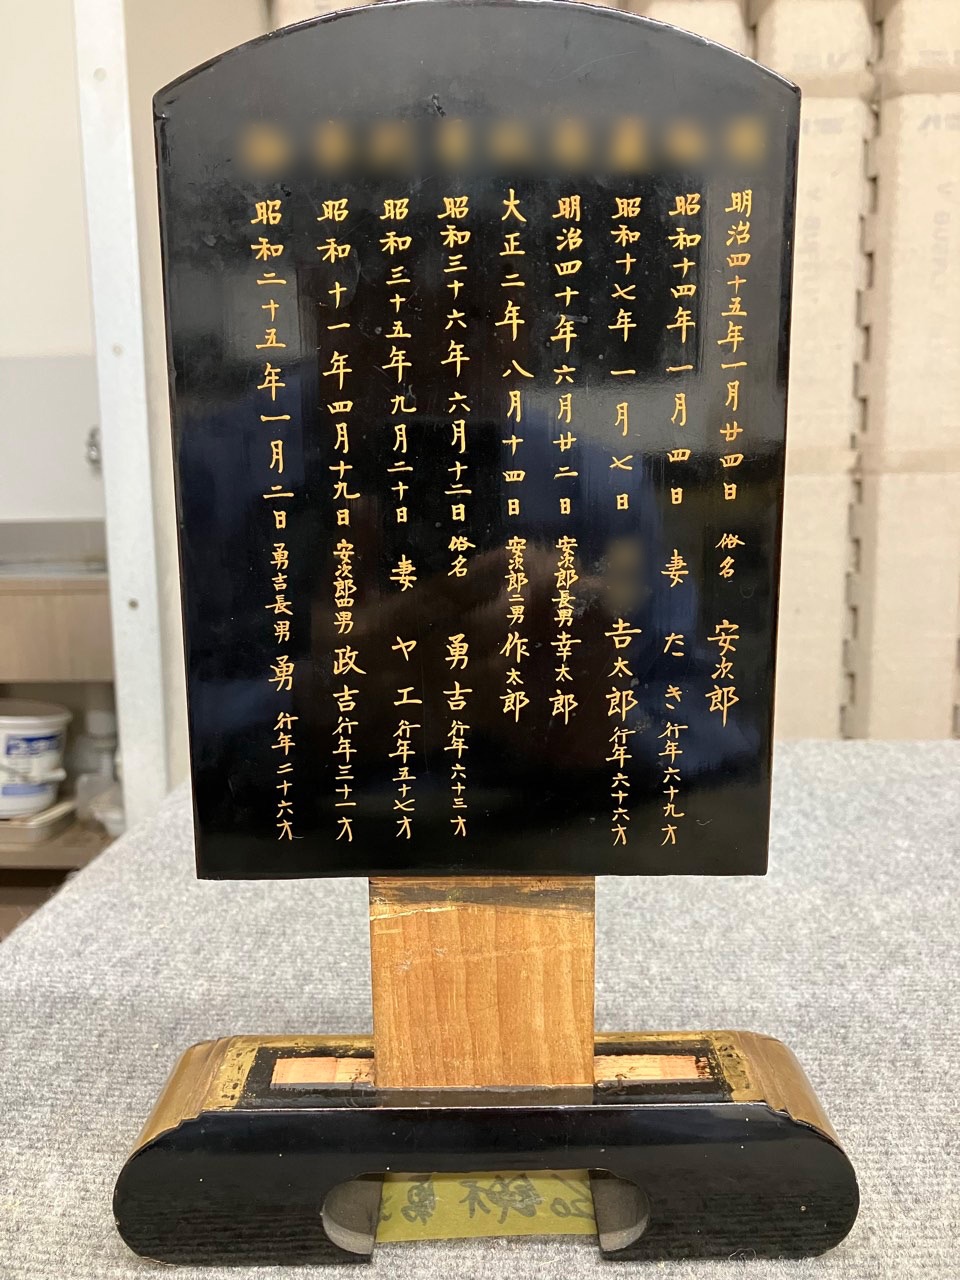 明治四十五年一月廿四日 俗名 安次郎
昭和十四年一月四日 妻 たき 行年六十九才
昭和十七年一月七日 吉太郎 行年六十六才
明治四十年六月廿二日 安次郎長男 幸太郎
大正二年八月十四日 安次郎二男 作太郎
昭和三十六年六月十二日 俗名 勇吉 行年六十三才
昭和三十五年九月二十日 妻 ヤエ 行年五十七才
昭和十一年四月十九日 安次郎四男 政吉 行年三十一才
昭和二十五年一月二日 勇吉長男 勇 行年二十六才